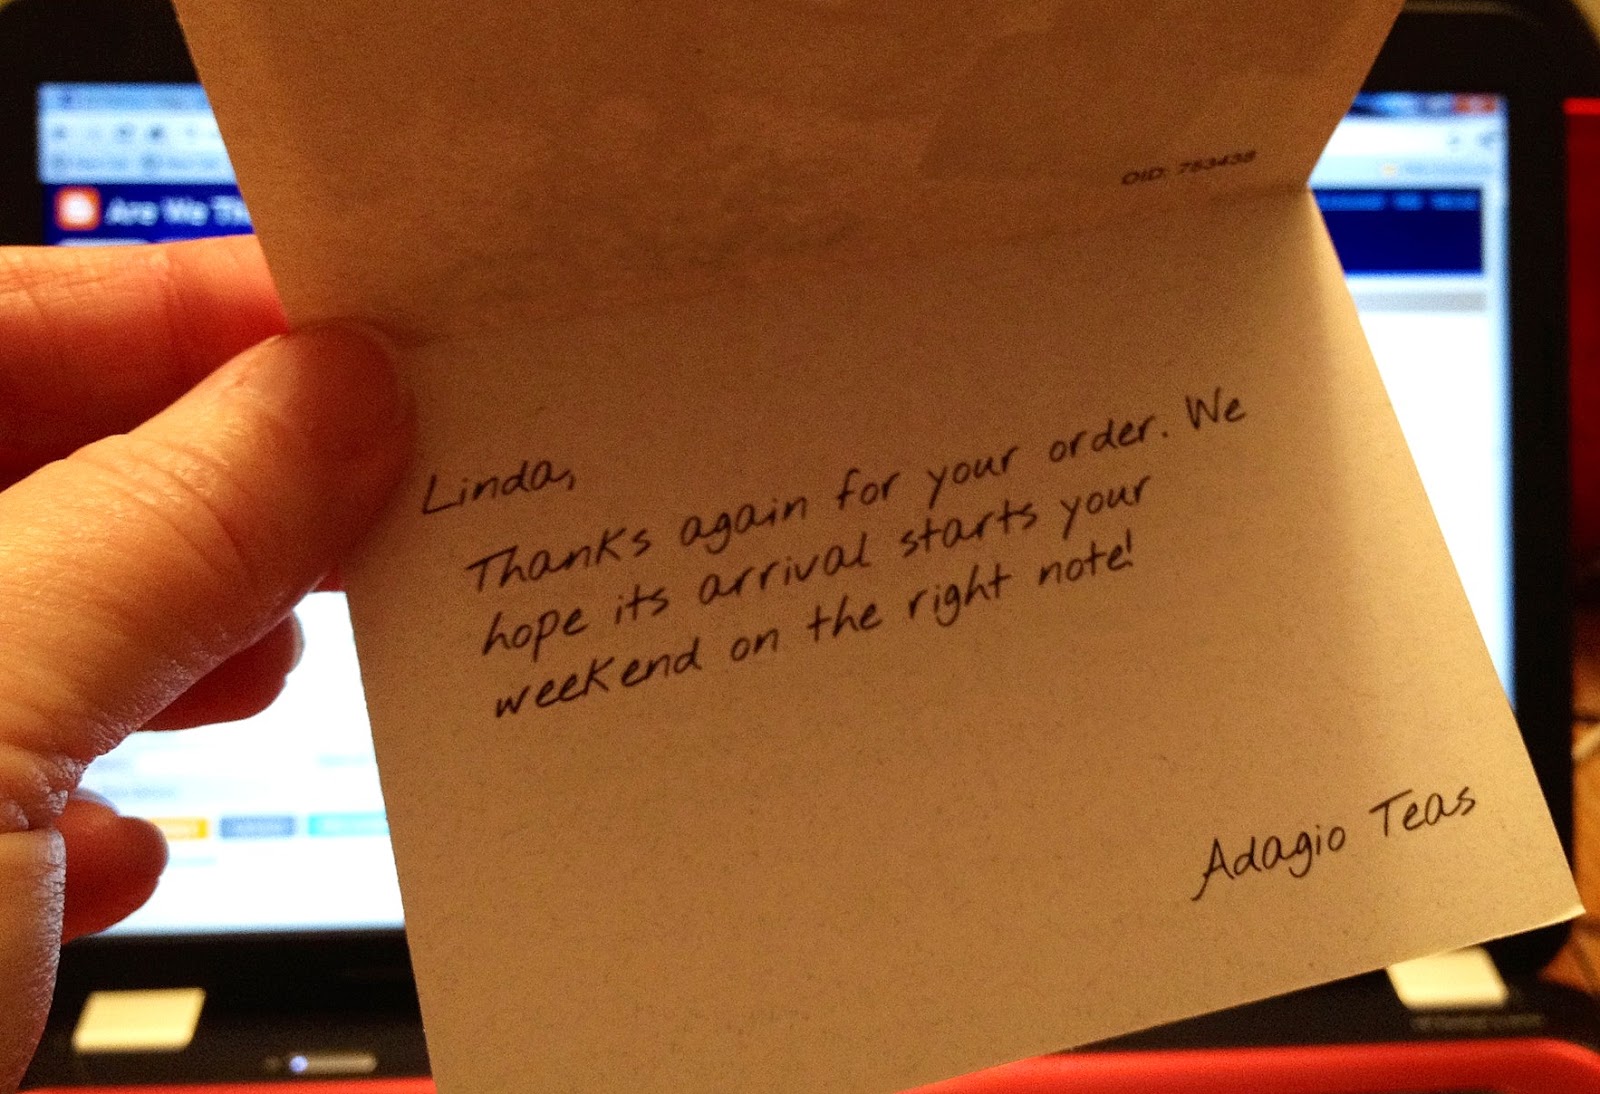 Are We Th
OID: 753438
Linda,
Thanks again for your order. We
hope its arrival starts your
weekend on the right note!
Adagio Teas